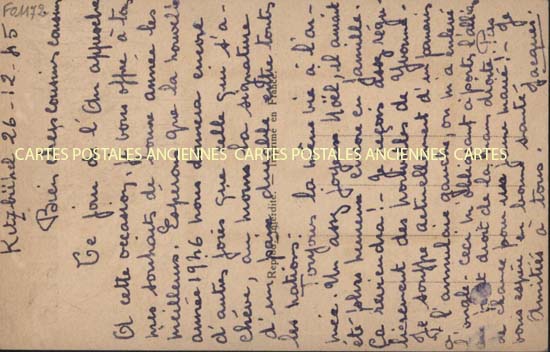 F01172
Kitzbühel 26-12-45
Bien chers cousins
Le jour de l'An approche
et cette occasion, je vous offre à tous
mes souhaits de bonne année les
meilleurs. Espérons que la nouvelle
année 1946 nous donnera encore
d'autres joies que celle qui s'a-
chève, au moins la signature
d'une paix durable entre toutes
les nations.
Toujours la même vie à l'ar-
mée. Un assez joyeux Noël, il aurait
été plus heureux encore en famille.
Ça reviendra! - Je reçois assez régu-
lièrement des nouvelles de
Je souffre actuellement d'un panaris
à l'annulaire gauche, on m'a enlevé
l'ongle
droit de la main droite. Pas
de chance pour un marié! - Je
vous espère en bonne santé
Amitiés à tous.
Jacques.
Reproduction interdite. - Imprimé en France.
CARTES POSTALES ANCIENNES CARTES POSTALES ANCIENNES CARTES POSTALES ANCIENNES